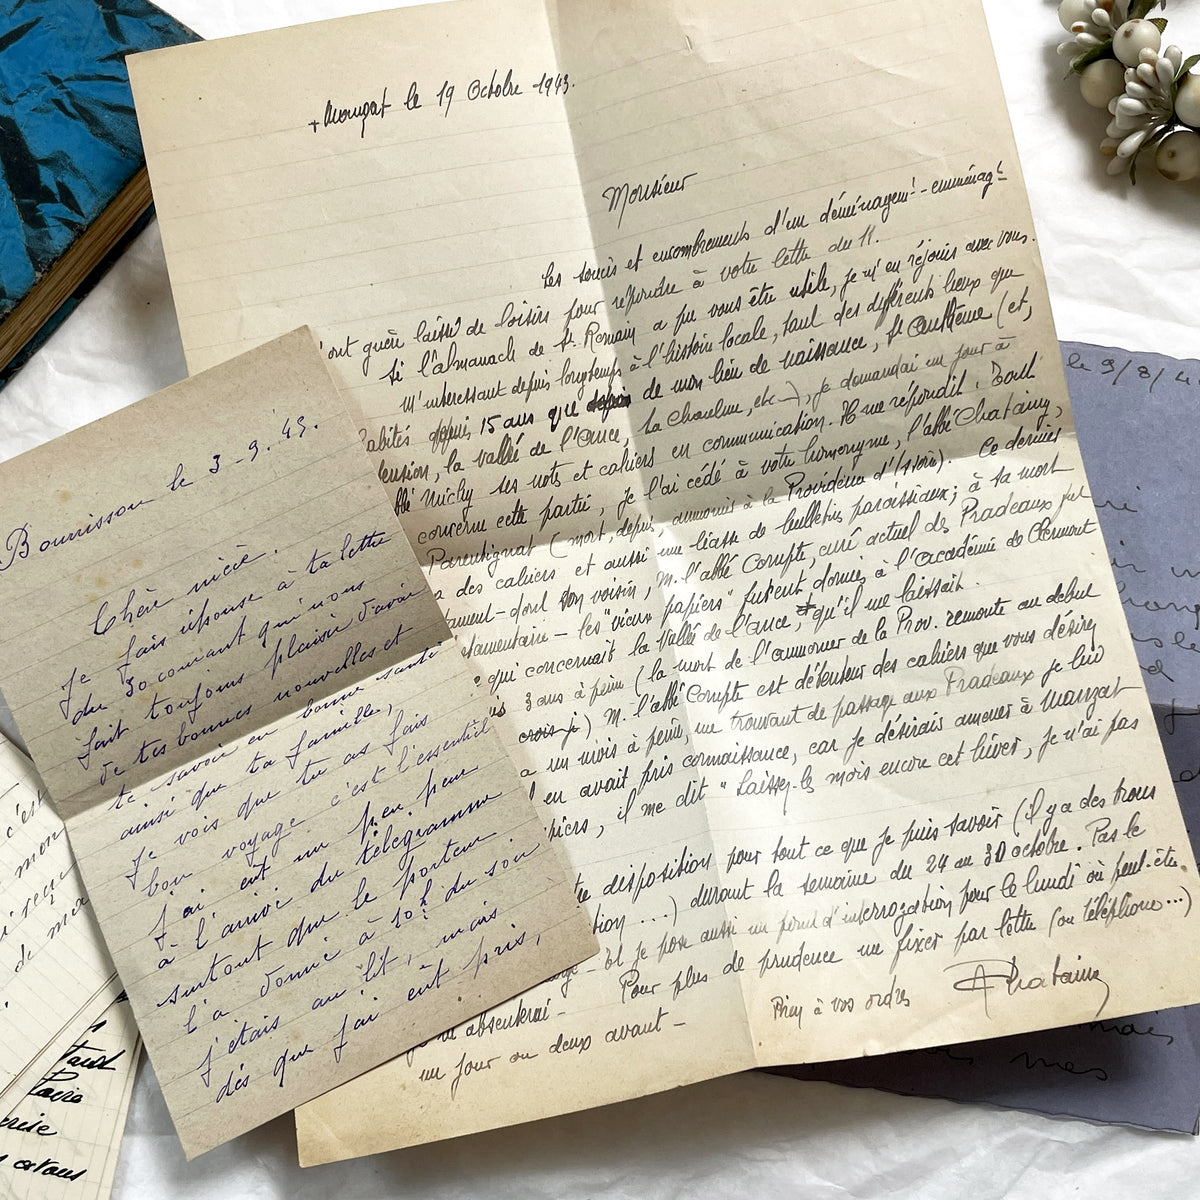 Manzat le 19 Octobre 1943.
Monsieur
Les soucis et encombrements d'un déménagemt - emménagt
ont guère laissé de loisirs pour répondre à votre lettre du 11.
Si l'almanach de St Romain a pu vous être utile, je m'en réjouis avec vous.
M'intéressant depuis longtemps à l'histoire locale, tant des différents lieux que
habités depuis 15 ans que de mon lieu de naissance, St Anthème (et,
tension, la vallée de l'Ance, la Chaulme, etc...), je demandai un jour à
bbé Michy ses nots et cahiers en communication. Il me répondit. Tout
concerne cette partie, je l'ai cédé à votre homonyme, l'abbé Chataing,
Parentignat (mort, depuis, aumonier à la Providence d'Issoire). Ce dernier
a des cahiers et aussi une liasse de bulletins paroissiaux; à sa mort
ament - dont son voisin, M. l'abbé Compte, curé actuel des Pradeaux fut
tamentaire - les "vieux papiers" furent donnés à l'académie de Clermont
e qui concernait la Vallée de l'Ance, qu'il me laissait.
3 ans à peine (la mort de l'aumonier de la Prov. remonte au début
crois-je) M. l'abbé Compte est détenteur des cahiers que vous désirez
a un mois à peine, me trouvant de passage aux Pradeaux je lui
en avait pris connaissance, car je désirais amener à Manzat
hiers, il me dit "Laissez-les mois encore cet hiver, je n'ai pas
disposition pour tout ce que je puis savoir (il y a des trous
tion ...) durant la semaine du 24 au 30 octobre. Pas le
age - Et je pose aussi un point d'interrogation pour le lundi où peut-être
je m'absenterai - Pour plus de prudence me fixer par lettre (ou téléphone...)
un jour ou deux avant -
Bien à vos ordres
A Chataing
Bournisson le 3-9.43.
Chère nièce.
Je fais réponse à ta lettre
du 30 courant qui nous
fait toujours plaisir d'avoir
de tes bonnes nouvelles et
te savoir en bonne santé
ainsi que ta famille,
Je vois que tu as fais
bon voyage c'est l'essentiel
J'ai eut un peu peur
à l'arrivé du télégramme
surtout que le porteur
l'a donné à 10h du soir
j'étais au lit, mais
dès que j'ai eut pris,
le 9/8/4
c'est
mon
de ma
Paire
mais
mes